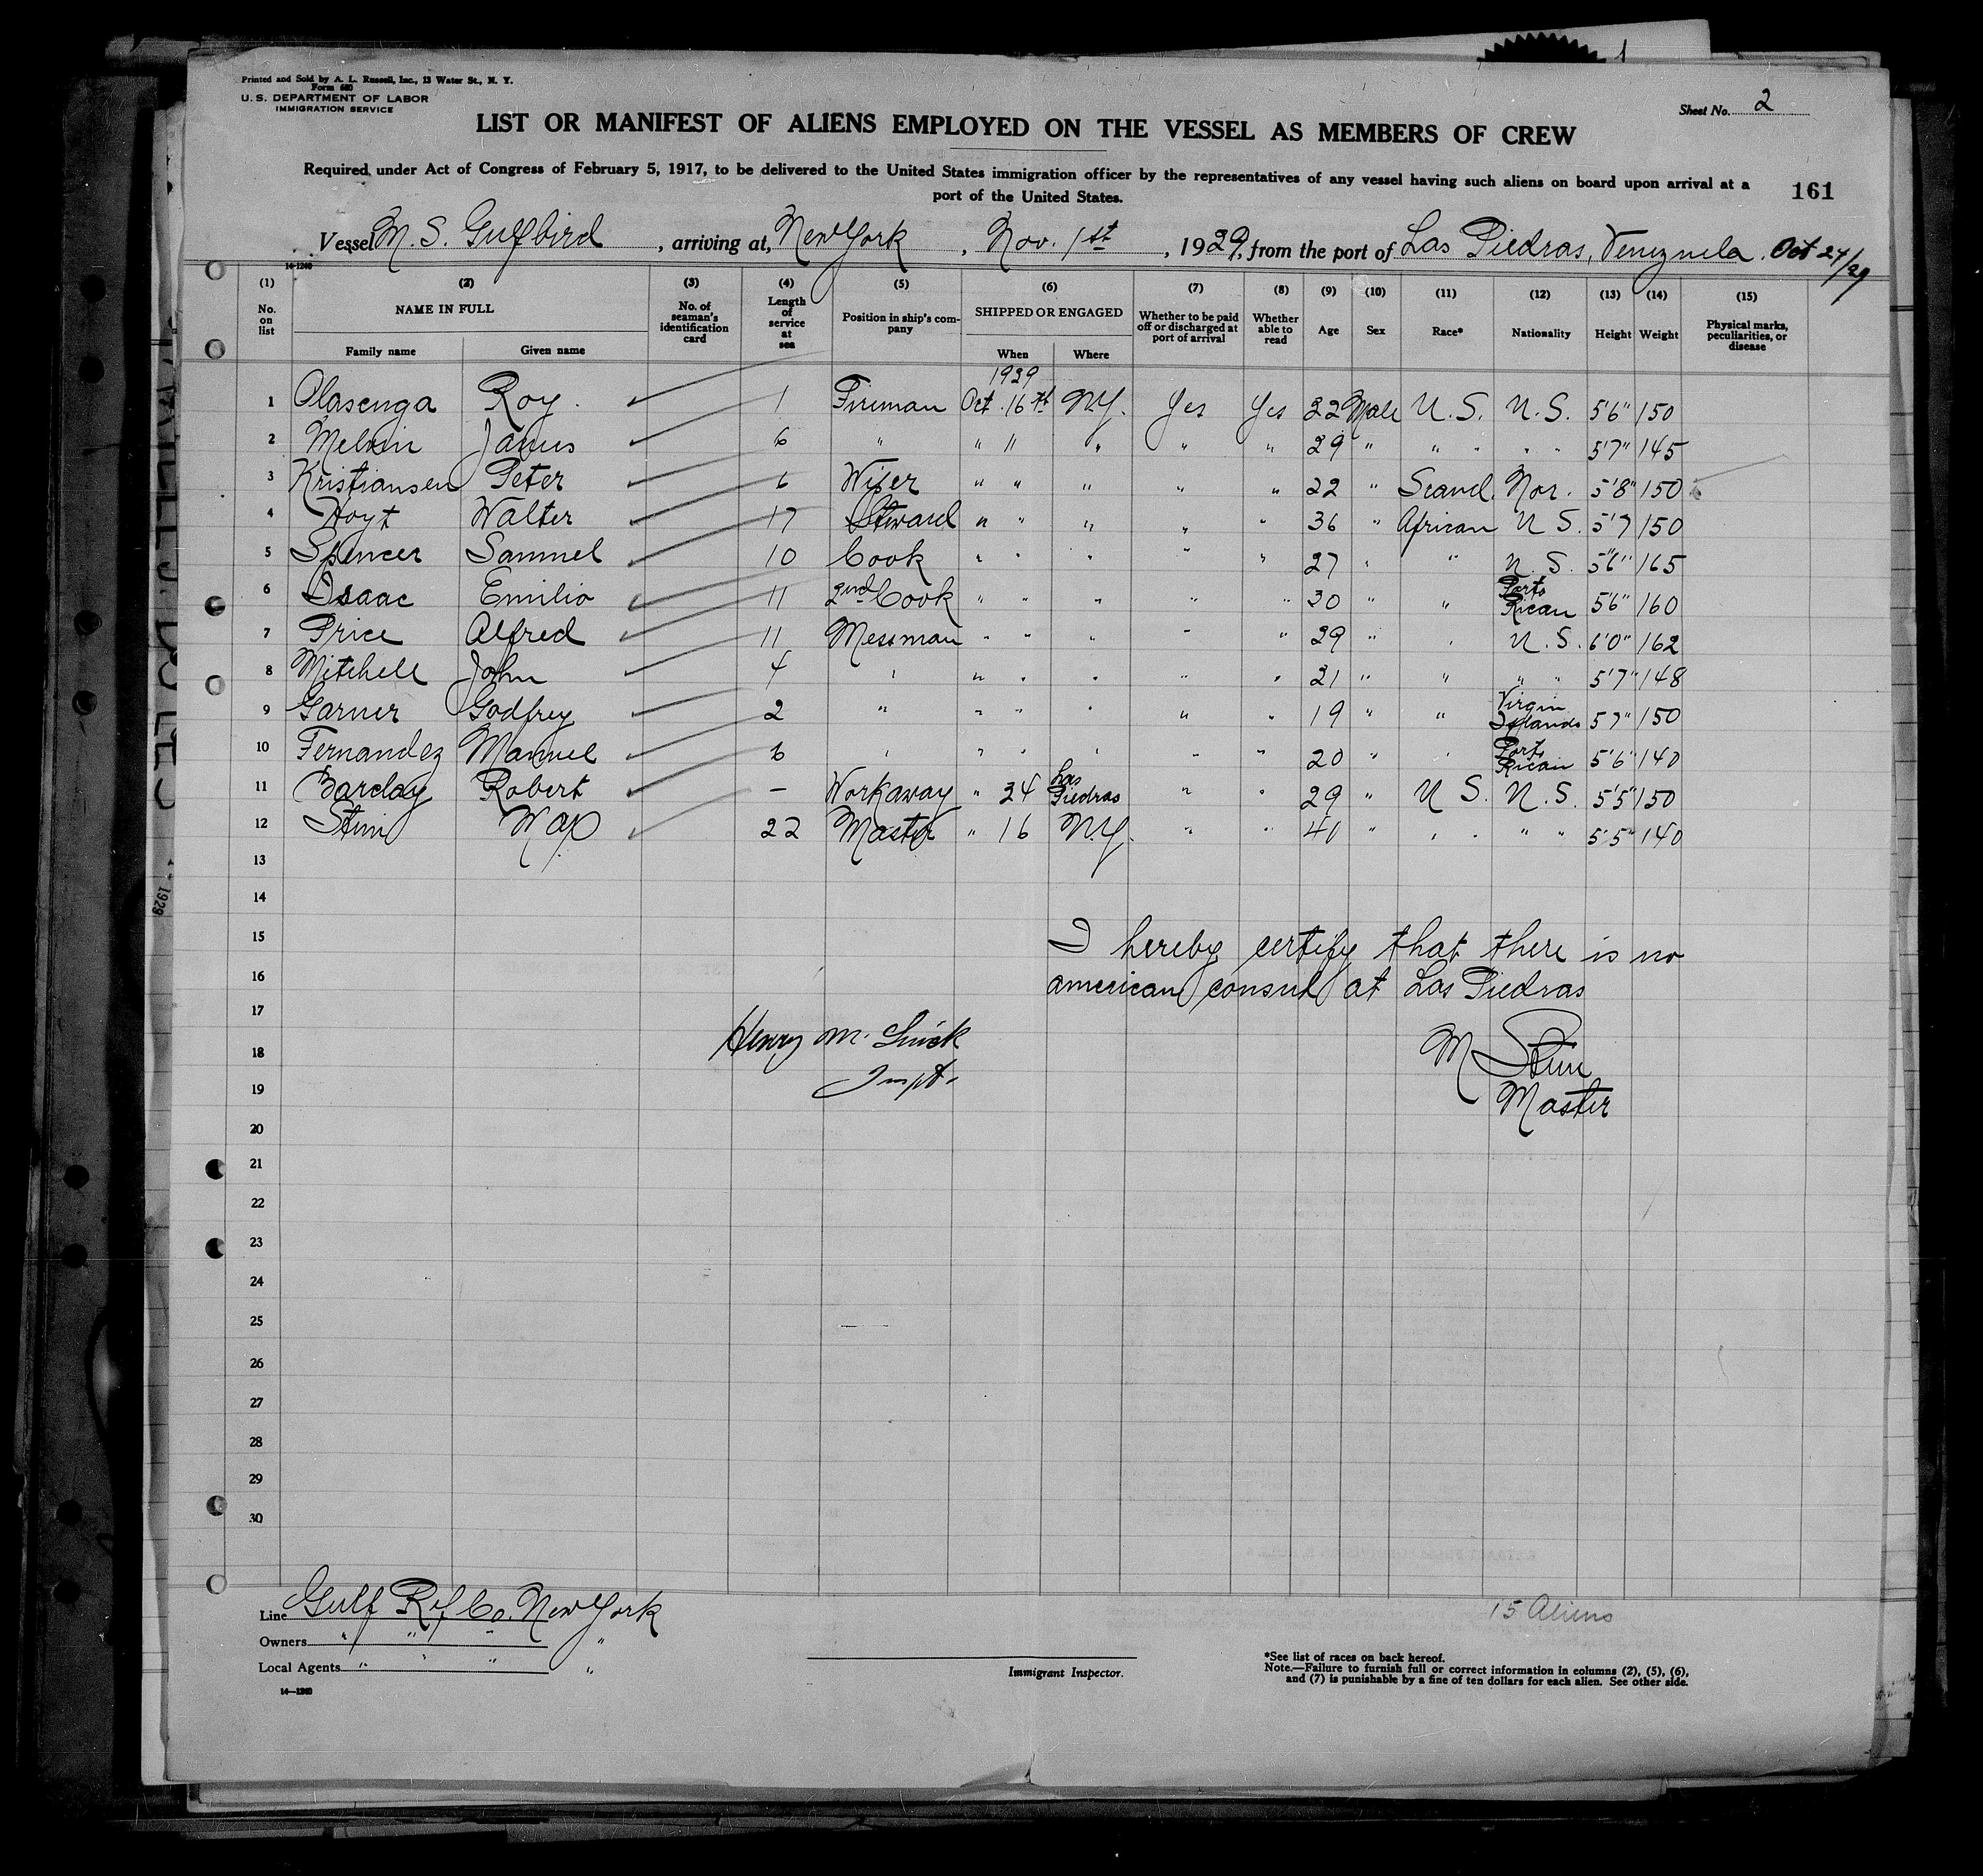 Printed and Sold by A. L. Russell, Inc., 13 Water St., N. Y.
Form 680
U. S. DEPARTMENT OF LABOR
IMMIGRATION SERVICE
Sheet No. 2
LIST OR MANIFEST OF ALIENS EMPLOYED ON THE VESSEL AS MEMBERS OF CREW
Required under Act of Congress of February 5, 1917, to be delivered to the United States immigration officer by the representatives of any vessel having such aliens on board upon arrival at a
port of the United States.
161
Vessel M. S. Gulfbird, arriving at, New York, Nov. 1st, 1929, from the port of Las Piedras, Venezuela. Oct 24/29
14-1240
(1) (2) (3) (4) (5) (6) (7) (8) (9) (10) (11) (12) (13) (14) (15)
No. on list NAME IN FULL No. of seaman's identification card Length of service at sea Position in ship's company SHIPPED OR ENGAGED Whether to be paid off or discharged at port of arrival Whether able to read Age Sex Race* Nationality Height Weight Physical marks, peculiarities, or disease
Family name Given name When Where
1929
1 Olasenga Roy 1 Fireman Oct. 16th N.Y. Yes Yes 22 Male U.S. U.S. 5'6" 150
2 Melvin 6 " " " " " " 29 " " " " " 5'7" 145
3 Kristiansen Peter 6 Wiper " " " " " 22 " Scand. Nor. 5'8" 150
4 Hoyt Walter 17 Steward " " " " " 36 " African U S. 5'7 150
5 Spencer Samuel 10 Cook " " " " " 27 " " U. S. 5'6" 165
6 Isaac Emilio 11 2nd Cook " " " " " 30 " " Porto Rican 5'6" 160
7 Price Alfred 11 Messman " " " " " 29 " " U. S. 6'0" 162
8 Mitchell John 4 " " " " " " 21 " " " " 5'7" 148
9 Garner Godfrey 2 " " " " " " 19 " " Virgin Islands 5'7" 150
10 Fernandez Manuel 6 " " " " " " 20 " " Porto Rican 5'6" 140
11 Barclay Robert - Workaway " 24 Las Piedras " " 29 " U S. U.S. 5'5" 150
12 Stim Max 22 Master " 16 N.Y. " " 40 " " " " " 5'5" 140
13
14
15
16
17
18
19
20
21
22
23
24
25
26
27
28
29
30
I hereby certify that there is no
american consul at Las Piedras
Henry M.
Inspt.
M Stim
Master
Line Gulf Ref Co. New York
Owners " " " "
Local Agents " " " "
14-1240
Immigrant Inspector.
15 Aliens
*See list of races on back hereof.
Note.—Failure to furnish full or correct information in columns (2), (5), (6),
and (7) is punishable by a fine of ten dollars for each alien. See other side.
1929